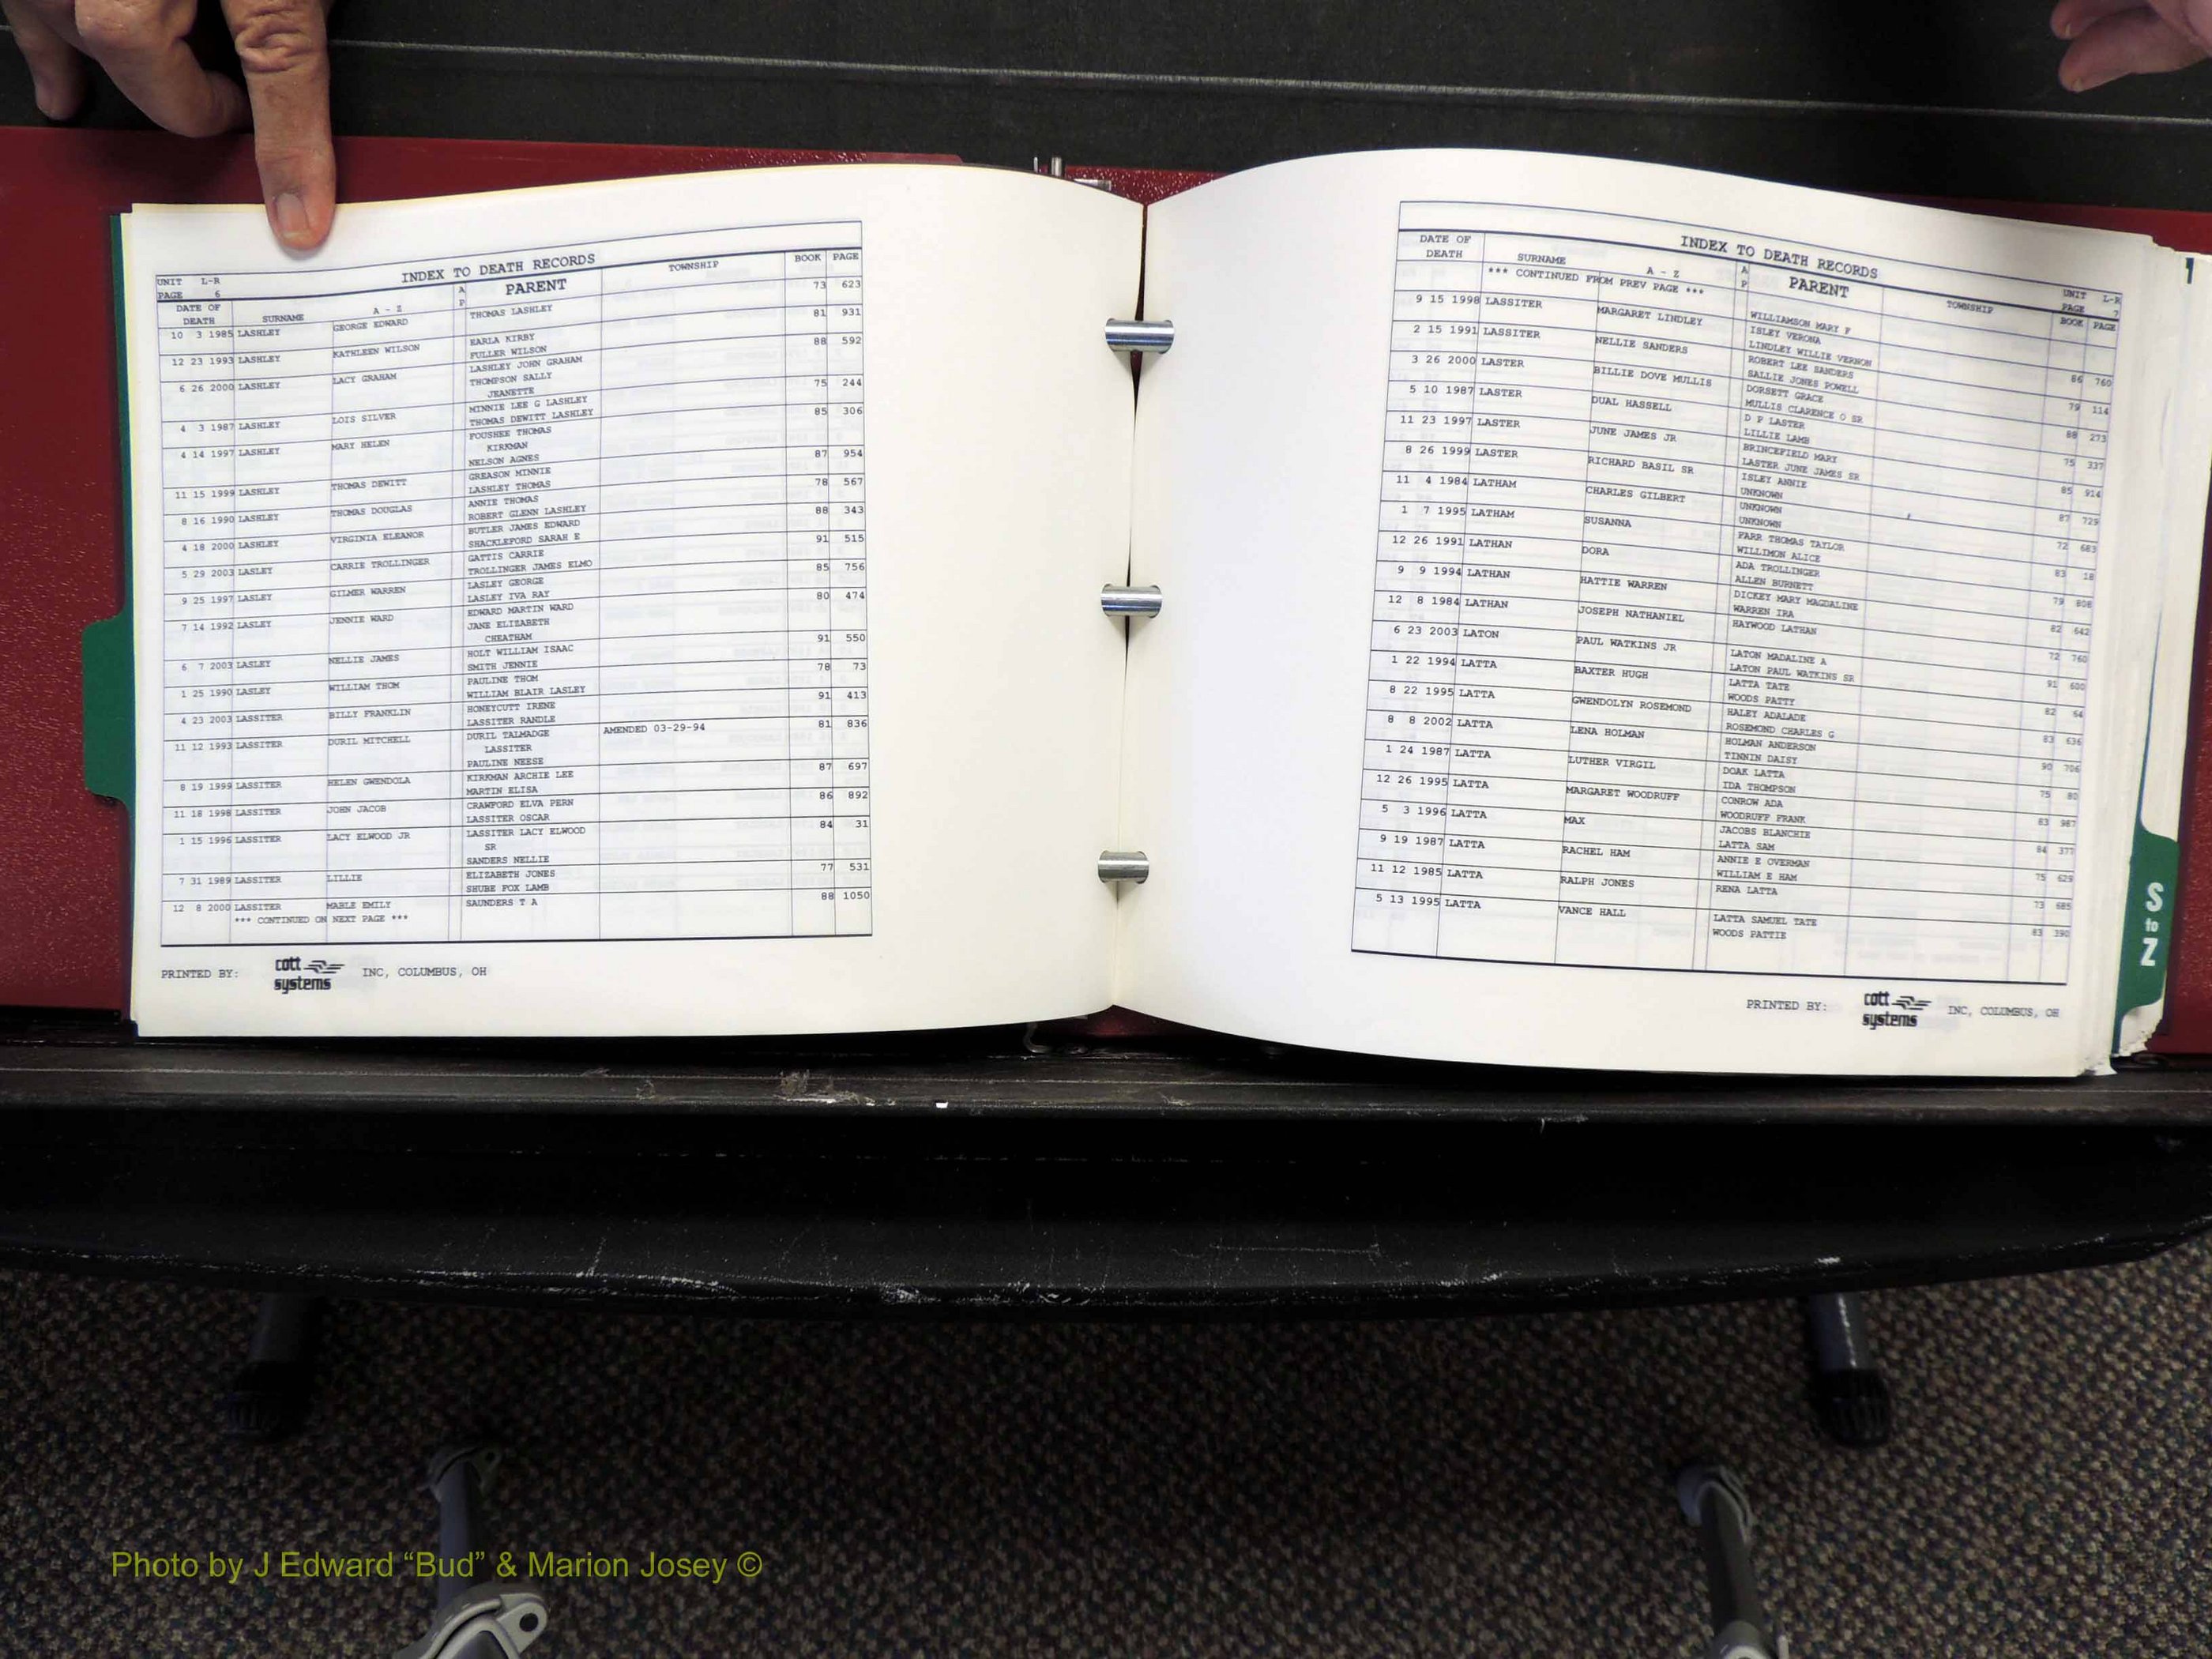 UNIT L-R
PAGE 6
INDEX TO DEATH RECORDS
DATE OF DEATH SURNAME A - Z A P PARENT TOWNSHIP BOOK PAGE
10 3 1985 LASHLEY GEORGE EDWARD THOMAS LASHLEY 73 623
12 23 1993 LASHLEY KATHLEEN WILSON EARLA KIRBY 81 931
FULLER WILSON
6 26 2000 LASHLEY LACY GRAHAM LASHLEY JOHN GRAHAM 88 592
THOMPSON SALLY
JEANETTE
4 3 1987 LASHLEY LOIS SILVER MINNIE LEE G LASHLEY 75 244
THOMAS DEWITT LASHLEY
4 14 1997 LASHLEY MARY HELEN FOUSHEE THOMAS 85 306
KIRKMAN
NELSON AGNES
11 15 1999 LASHLEY THOMAS DEWITT GREASON MINNIE 87 954
LASHLEY THOMAS
8 16 1990 LASHLEY THOMAS DOUGLAS ANNIE THOMAS 78 567
ROBERT GLENN LASHLEY
4 18 2000 LASHLEY VIRGINIA ELEANOR BUTLER JAMES EDWARD 88 343
SHACKLEFORD SARAH E
5 29 2003 LASLEY CARRIE TROLLINGER GATTIS CARRIE 91 515
TROLLINGER JAMES ELMO
9 25 1997 LASLEY GILMER WARREN LASLEY GEORGE 85 756
LASLEY IVA RAY
7 14 1992 LASLEY JENNIE WARD EDWARD MARTIN WARD 80 474
JANE ELIZABETH
CHEATHAM
6 7 2003 LASLEY NELLIE JAMES HOLT WILLIAM ISAAC 91 550
SMITH JENNIE
1 25 1990 LASLEY WILLIAM THOM PAULINE THOM 78 73
WILLIAM BLAIR LASLEY
4 23 2003 LASSITER BILLY FRANKLIN HONEYCUTT IRENE 91 413
LASSITER RANDLE
11 12 1993 LASSITER DURIL MITCHELL DURIL TALMADGE AMENDED 03-29-94 81 836
LASSITER
PAULINE NEESE
8 19 1999 LASSITER HELEN GWENDOLA KIRKMAN ARCHIE LEE 87 697
MARTIN ELISA
11 18 1998 LASSITER JOHN JACOB CRAWFORD ELVA PERN 86 892
LASSITER OSCAR
1 15 1996 LASSITER LACY ELWOOD JR LASSITER LACY ELWOOD 84 31
SR
SANDERS NELLIE
7 31 1989 LASSITER LILLIE ELIZABETH JONES 77 531
SHUBE FOX LAMB
12 8 2000 LASSITER MABLE EMILY SAUNDERS T A 88 1050
*** CONTINUED ON NEXT PAGE ***
PRINTED BY: cott systems INC, COLUMBUS, OH
INDEX TO DEATH RECORDS
UNIT L-R
PAGE 7
DATE OF DEATH SURNAME A - Z A P PARENT TOWNSHIP BOOK PAGE
*** CONTINUED FROM PREV PAGE ***
WILLIAMSON MARY F
9 15 1998 LASSITER MARGARET LINDLEY ISLEY VERONA 86 760
LINDLEY WILLIE VERNON
2 15 1991 LASSITER NELLIE SANDERS ROBERT LEE SANDERS 79 114
SALLIE JONES POWELL
3 26 2000 LASTER BILLIE DOVE MULLIS DORSETT GRACE 88 273
MULLIS CLARENCE O SR
5 10 1987 LASTER DUAL HASSELL D P LASTER 75 337
LILLIE LAMB
11 23 1997 LASTER JUNE JAMES JR BRINCEFIELD MARY 85 914
LASTER JUNE JAMES SR
8 26 1999 LASTER RICHARD BASIL SR ISLEY ANNIE 87 729
UNKNOWN
11 4 1984 LATHAM CHARLES GILBERT UNKNOWN 72 683
UNKNOWN
1 7 1995 LATHAM SUSANNA FARR THOMAS TAYLOR 83 18
WILLIMON ALICE
12 26 1991 LATHAN DORA ADA TROLLINGER 79 808
ALLEN BURNETT
9 9 1994 LATHAN HATTIE WARREN DICKEY MARY MAGDALINE 82 642
WARREN IRA
12 8 1984 LATHAN JOSEPH NATHANIEL HAYWOOD LATHAN 72 760
6 23 2003 LATON PAUL WATKINS JR LATON MADALINE A 91 600
LATON PAUL WATKINS SR
1 22 1994 LATTA BAXTER HUGH LATTA TATE 82 64
WOODS PATTY
8 22 1995 LATTA GWENDOLYN ROSEMOND HALEY ADALADE 83 636
ROSEMOND CHARLES G
8 8 2002 LATTA LENA HOLMAN HOLMAN ANDERSON 90 706
TINNIN DAISY
1 24 1987 LATTA LUTHER VIRGIL DOAK LATTA 75 80
IDA THOMPSON
12 26 1995 LATTA MARGARET WOODRUFF CONROW ADA 83 987
WOODRUFF FRANK
5 3 1996 LATTA MAX JACOBS BLANCHIE 84 377
LATTA SAM
9 19 1987 LATTA RACHEL HAM ANNIE E OVERMAN 75 629
WILLIAM E HAM
11 12 1985 LATTA RALPH JONES RENA LATTA 73 685
5 13 1995 LATTA VANCE HALL LATTA SAMUEL TATE 83 390
WOODS PATTIE
PRINTED BY: cott systems INC, COLUMBUS, OH
S to Z
Photo by J Edward “Bud” & Marion Josey ©